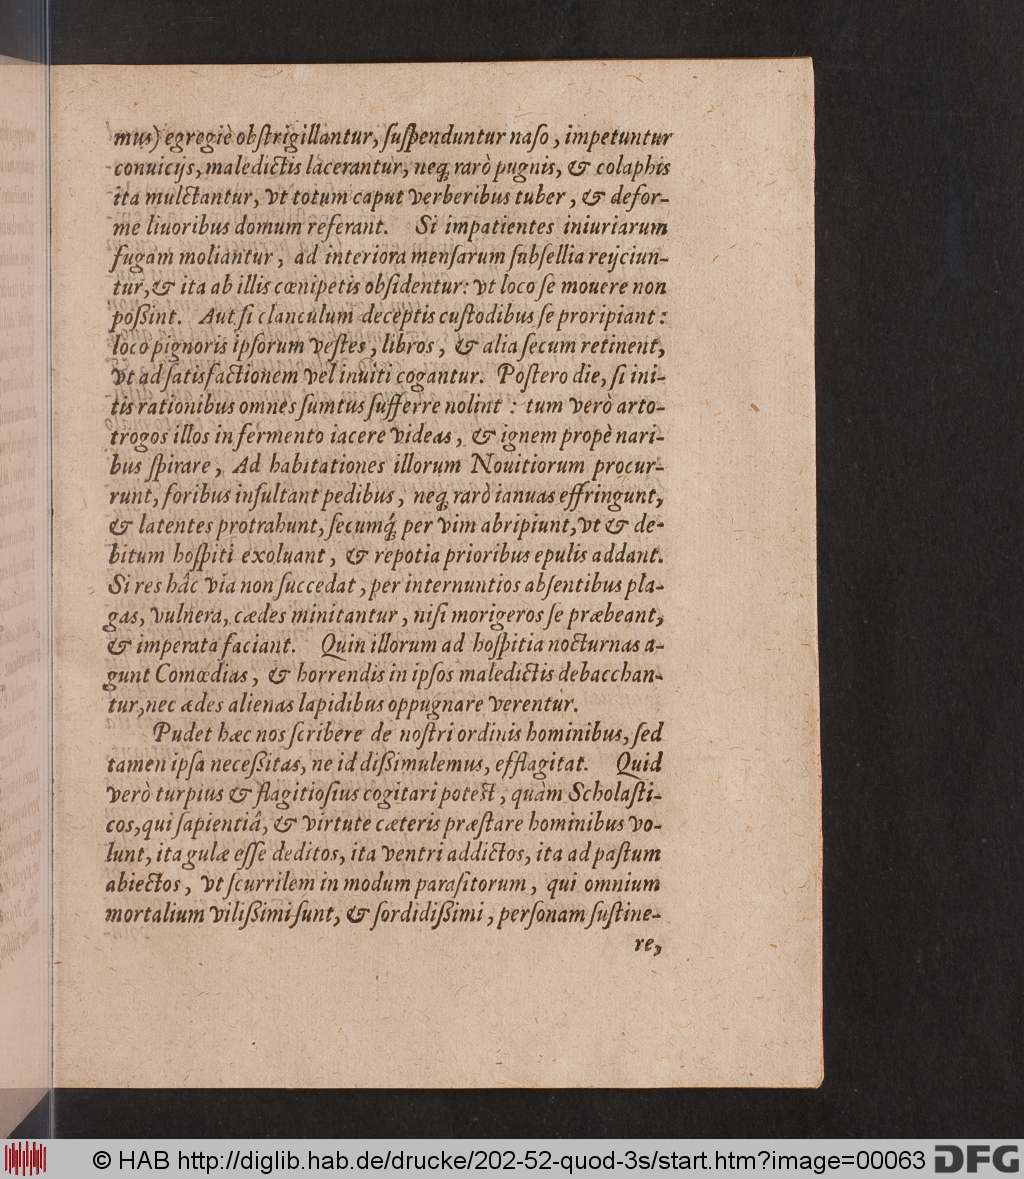 mus) egregiè obſtrigillantur, ſuſpenduntur naſo, impetuntur
conuicijs, maledictis lacerantur, neq́; rarò pugnis, & colaphis
ita mulctantur, vt totum caput verberibus tuber, & defor-
me liuoribus domum referant. Si impatientes iniuriarum
fugam moliantur, ad interiora menſarum ſubſellia reijciun-
tur, & ita ab illis cœnipetis obſidentur: vt loco ſe mouere non
poßint. Aut ſi clanculum deceptis cuſtodibus ſe proripiant:
loco pignoris ipſorum veſtes, libros, & alia ſecum retinent,
vt ad ſatisfactionem vel inuiti cogantur. Poſtero die, ſi ini-
tis rationibus omnes ſumtus ſufferre nolint: tum verò arto-
trogos illos in fermento iacere videas, & ignem propè nari-
bus ſpirare, Ad habitationes illorum Nouitiorum procur-
runt, foribus inſultant pedibus, neq́; rarò ianuas effringunt,
& latentes protrahunt, ſecumq́; per vim abripiunt, vt & de-
bitum hoſpiti exoluant, & repotia prioribus epulis addant.
Si res hâc via non ſuccedat, per internuntios abſentibus pla-
gas, vulnera, cædes minitantur, niſi morigeros ſe præbeant,
& imperata faciant. Quin illorum ad hoſpitia nocturnas a-
gunt Comœdias, & horrendis in ipſos maledictis debacchan-
tur, nec ædes alienas lapidibus oppugnare verentur.
Pudet hæc nos ſcribere de noſtri ordinis hominibus, ſed
tamen ipſa neceßitas, ne id dißimulemus, efflagitat. Quid
verò turpius & flagitioſius cogitari poteſt, quàm Scholaſti-
cos, qui ſapientiâ, & virtute cæteris præſtare hominibus vo-
lunt, ita gulæ eſſe deditos, ita ventri addictos, ita ad paſtum
abiectos, vt ſcurrilem in modum paraſitorum, qui omnium
mortalium vilißimi ſunt, & ſordidißimi, perſonam ſuſtine-
re,
© HAB http://diglib.hab.de/drucke/202-52-quod-3s/start.htm?image=00063 DFG